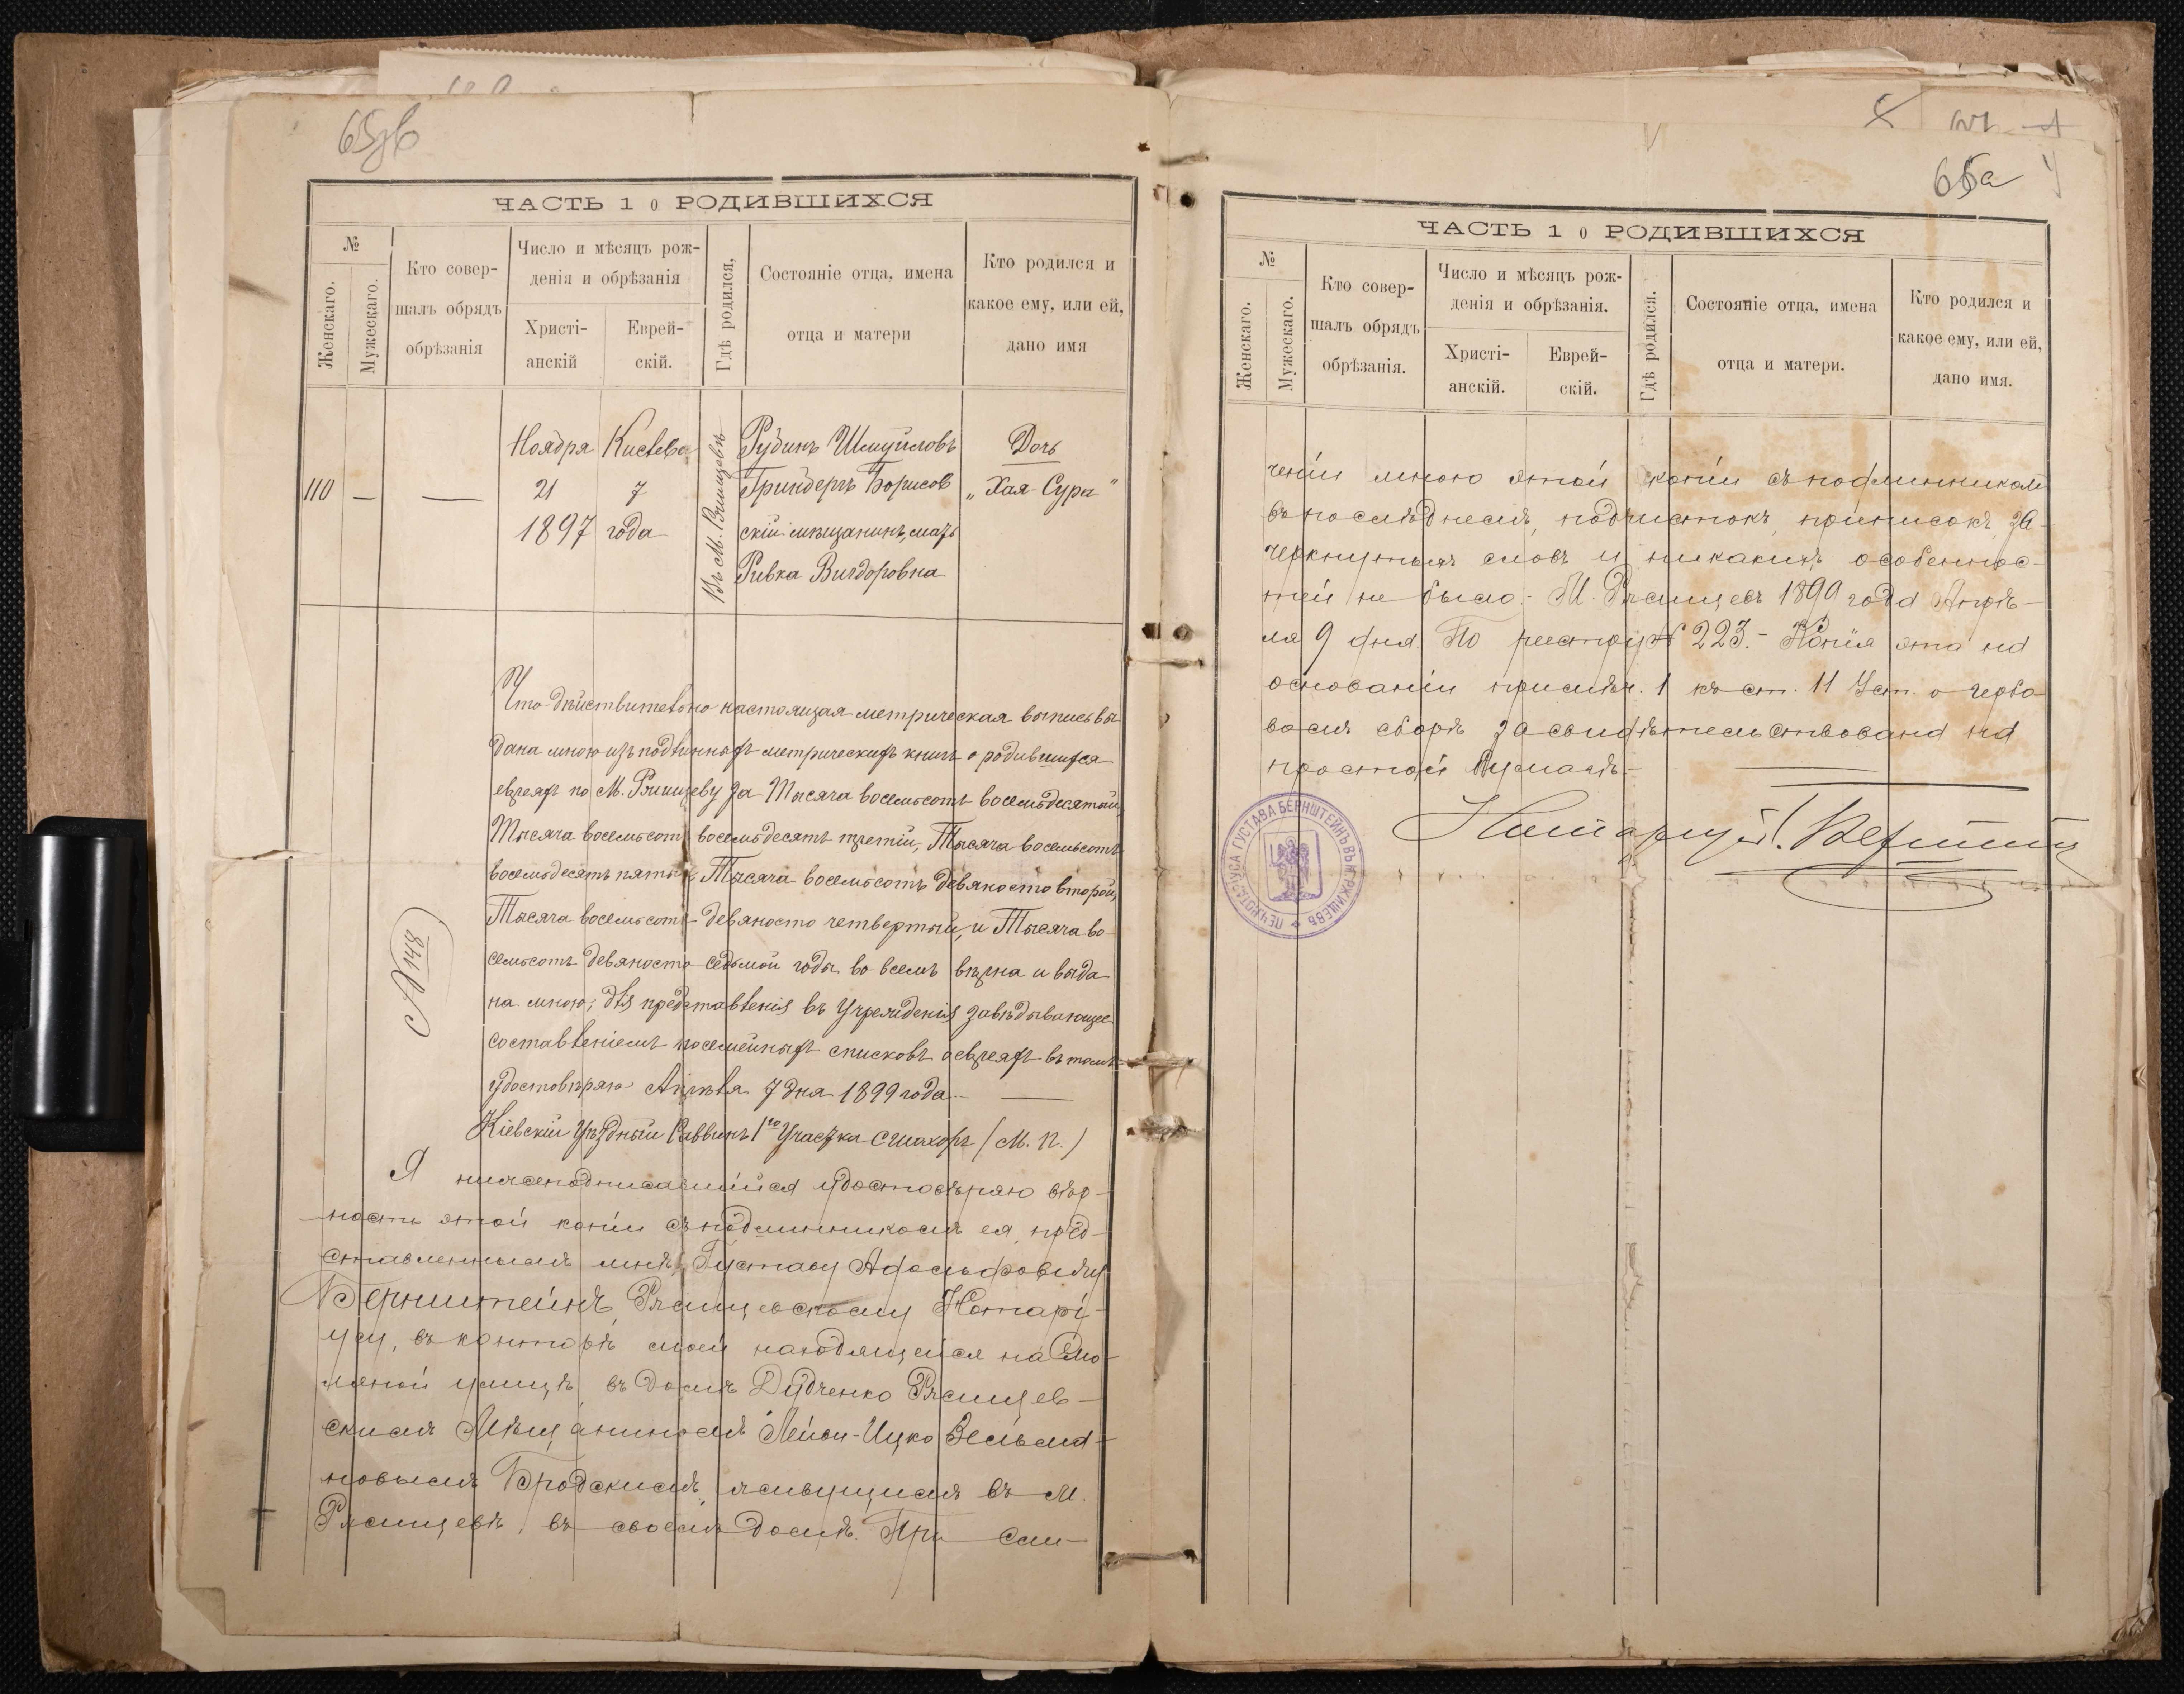 65об
ЧАСТЬ 1 о РОДИВШИХСЯ
№
Женскаго.
Мужескаго.
Кто совер-
шалъ обрядъ
обрѣзанія
Число и мѣсяцъ рож-
денія и обрѣзанія
Христі-
анскій
Еврей-
скій.
Гдѣ родился,
Состояніе отца, имена
отца и матери
Кто родился и
какое ему, или ей,
дано имя
110 — —
Ноября
21
1897
Кислева
7
года
Въ М. Ржищевѣ
Рубинъ Шмуйловъ
Гринбергъ Борисов
скій мѣщанинъ, мать
Ривка Вигдоровна
Дочь
„Хая-Сура"
Что дѣйствительно настоящая метрическая выпись вы
дана мною изъ подлинныхъ метрическихъ книгъ о родившихся
евреяхъ по М. Ржищеву за Тысяча восемьсотъ восемьдесятый,
Тысяча восемьсотъ восемьдесятъ третій, Тысяча восемьсотъ
восемьдесятъ пятый, Тысяча восемьсотъ девяносто второй,
Тысяча восемьсотъ девяносто четвертый, и Тысяча во
семьсотъ девяносто седьмой годы во всемъ вѣрна и выда
на мною, для представленія въ Учрежденія завѣдывающее
составленіемъ посемейныхъ списковъ о евреяхъ въ томъ
удостовѣряю Апрѣля 7 дня 1899 года. —
№ 148
Кіевскій Уѣздный Раввинъ 1го Участка (М. П.)
Я нижеподписавшійся удостовѣряю вѣр-
ность этой копіи съ подлинникомъ ея, пред-
ставленнымъ мнѣ, Густаву Адольфовичу
Бернштейнъ, Ржищевскому Нотарі-
усу, въ конторѣ моей находящейся на
улицѣ въ домѣ Дудченко Ржищев-
скимъ Мѣщаниномъ Лейви-Ицко Зельма-
новымъ Бродскимъ, живущимъ въ М.
Ржищевѣ, въ своемъ домѣ. При сли-
65а
ЧАСТЬ 1 о РОДИВШИХСЯ
№
Женскаго.
Мужескаго.
Кто совер-
шалъ обрядъ
обрѣзанія.
Число и мѣсяцъ рож-
денія и обрѣзанія.
Христі-
анскій.
Еврей-
скій.
Гдѣ родился.
Состояніе отца, имена
отца и матери.
Кто родился и
какое ему, или ей,
дано имя.
ченіи мною этой копіи съ подлинникомъ
въ послѣднемъ, подчистокъ, приписокъ, за-
черкнутыхъ словъ и никакихъ особеннос-
тей не было. - М. Ржищевъ 1899 года Апрѣ-
ля 9 дня. По реестру № 223. - Копія эта на
основаніи примѣч. 1 къ ст. 11 Уст. о гербо
вомъ сборѣ засвидѣтельствована на
простой бумагѣ. —
Нотаріусъ Г. Бернштейн
ПЕЧ. НОТАРІУСА ГУСТАВА БЕРНШТЕЙНЪ ВЪ М. РЖИЩЕВѢ